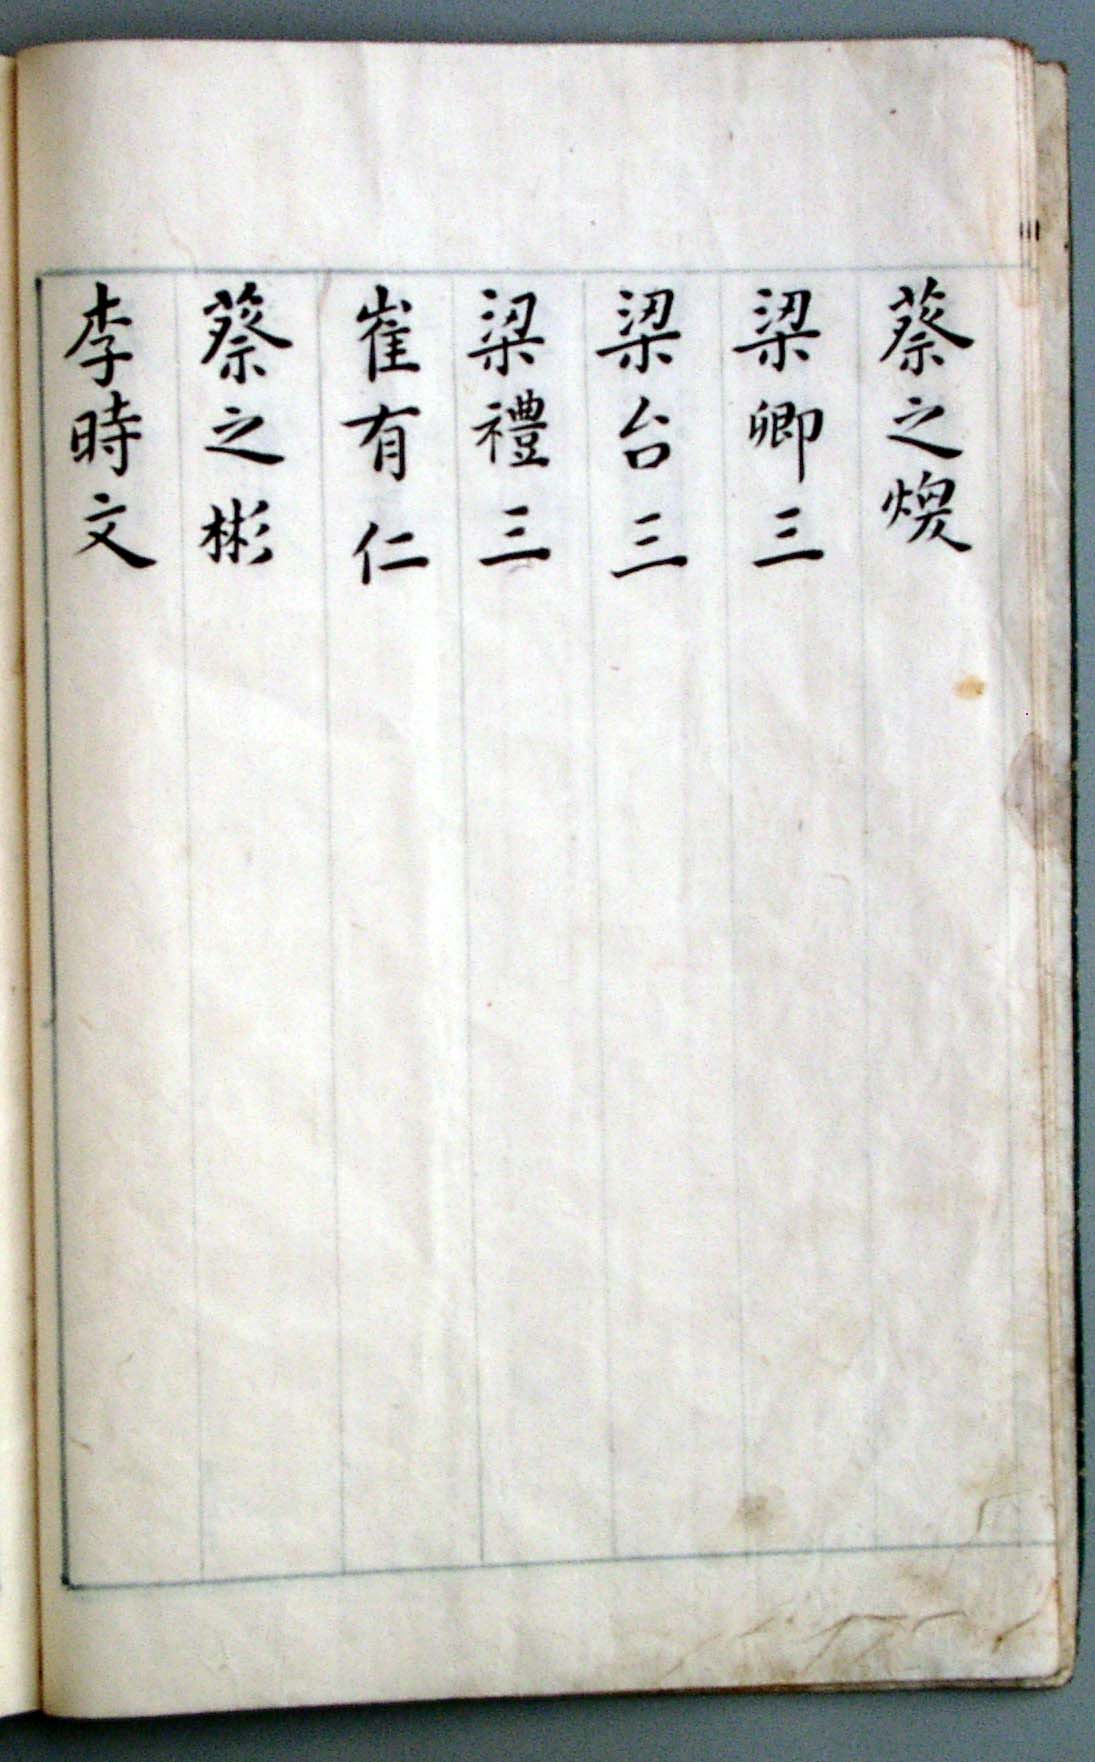 蔡之煥
梁卿三
梁台三
梁禮三
崔有仁
蔡之彬
李時文